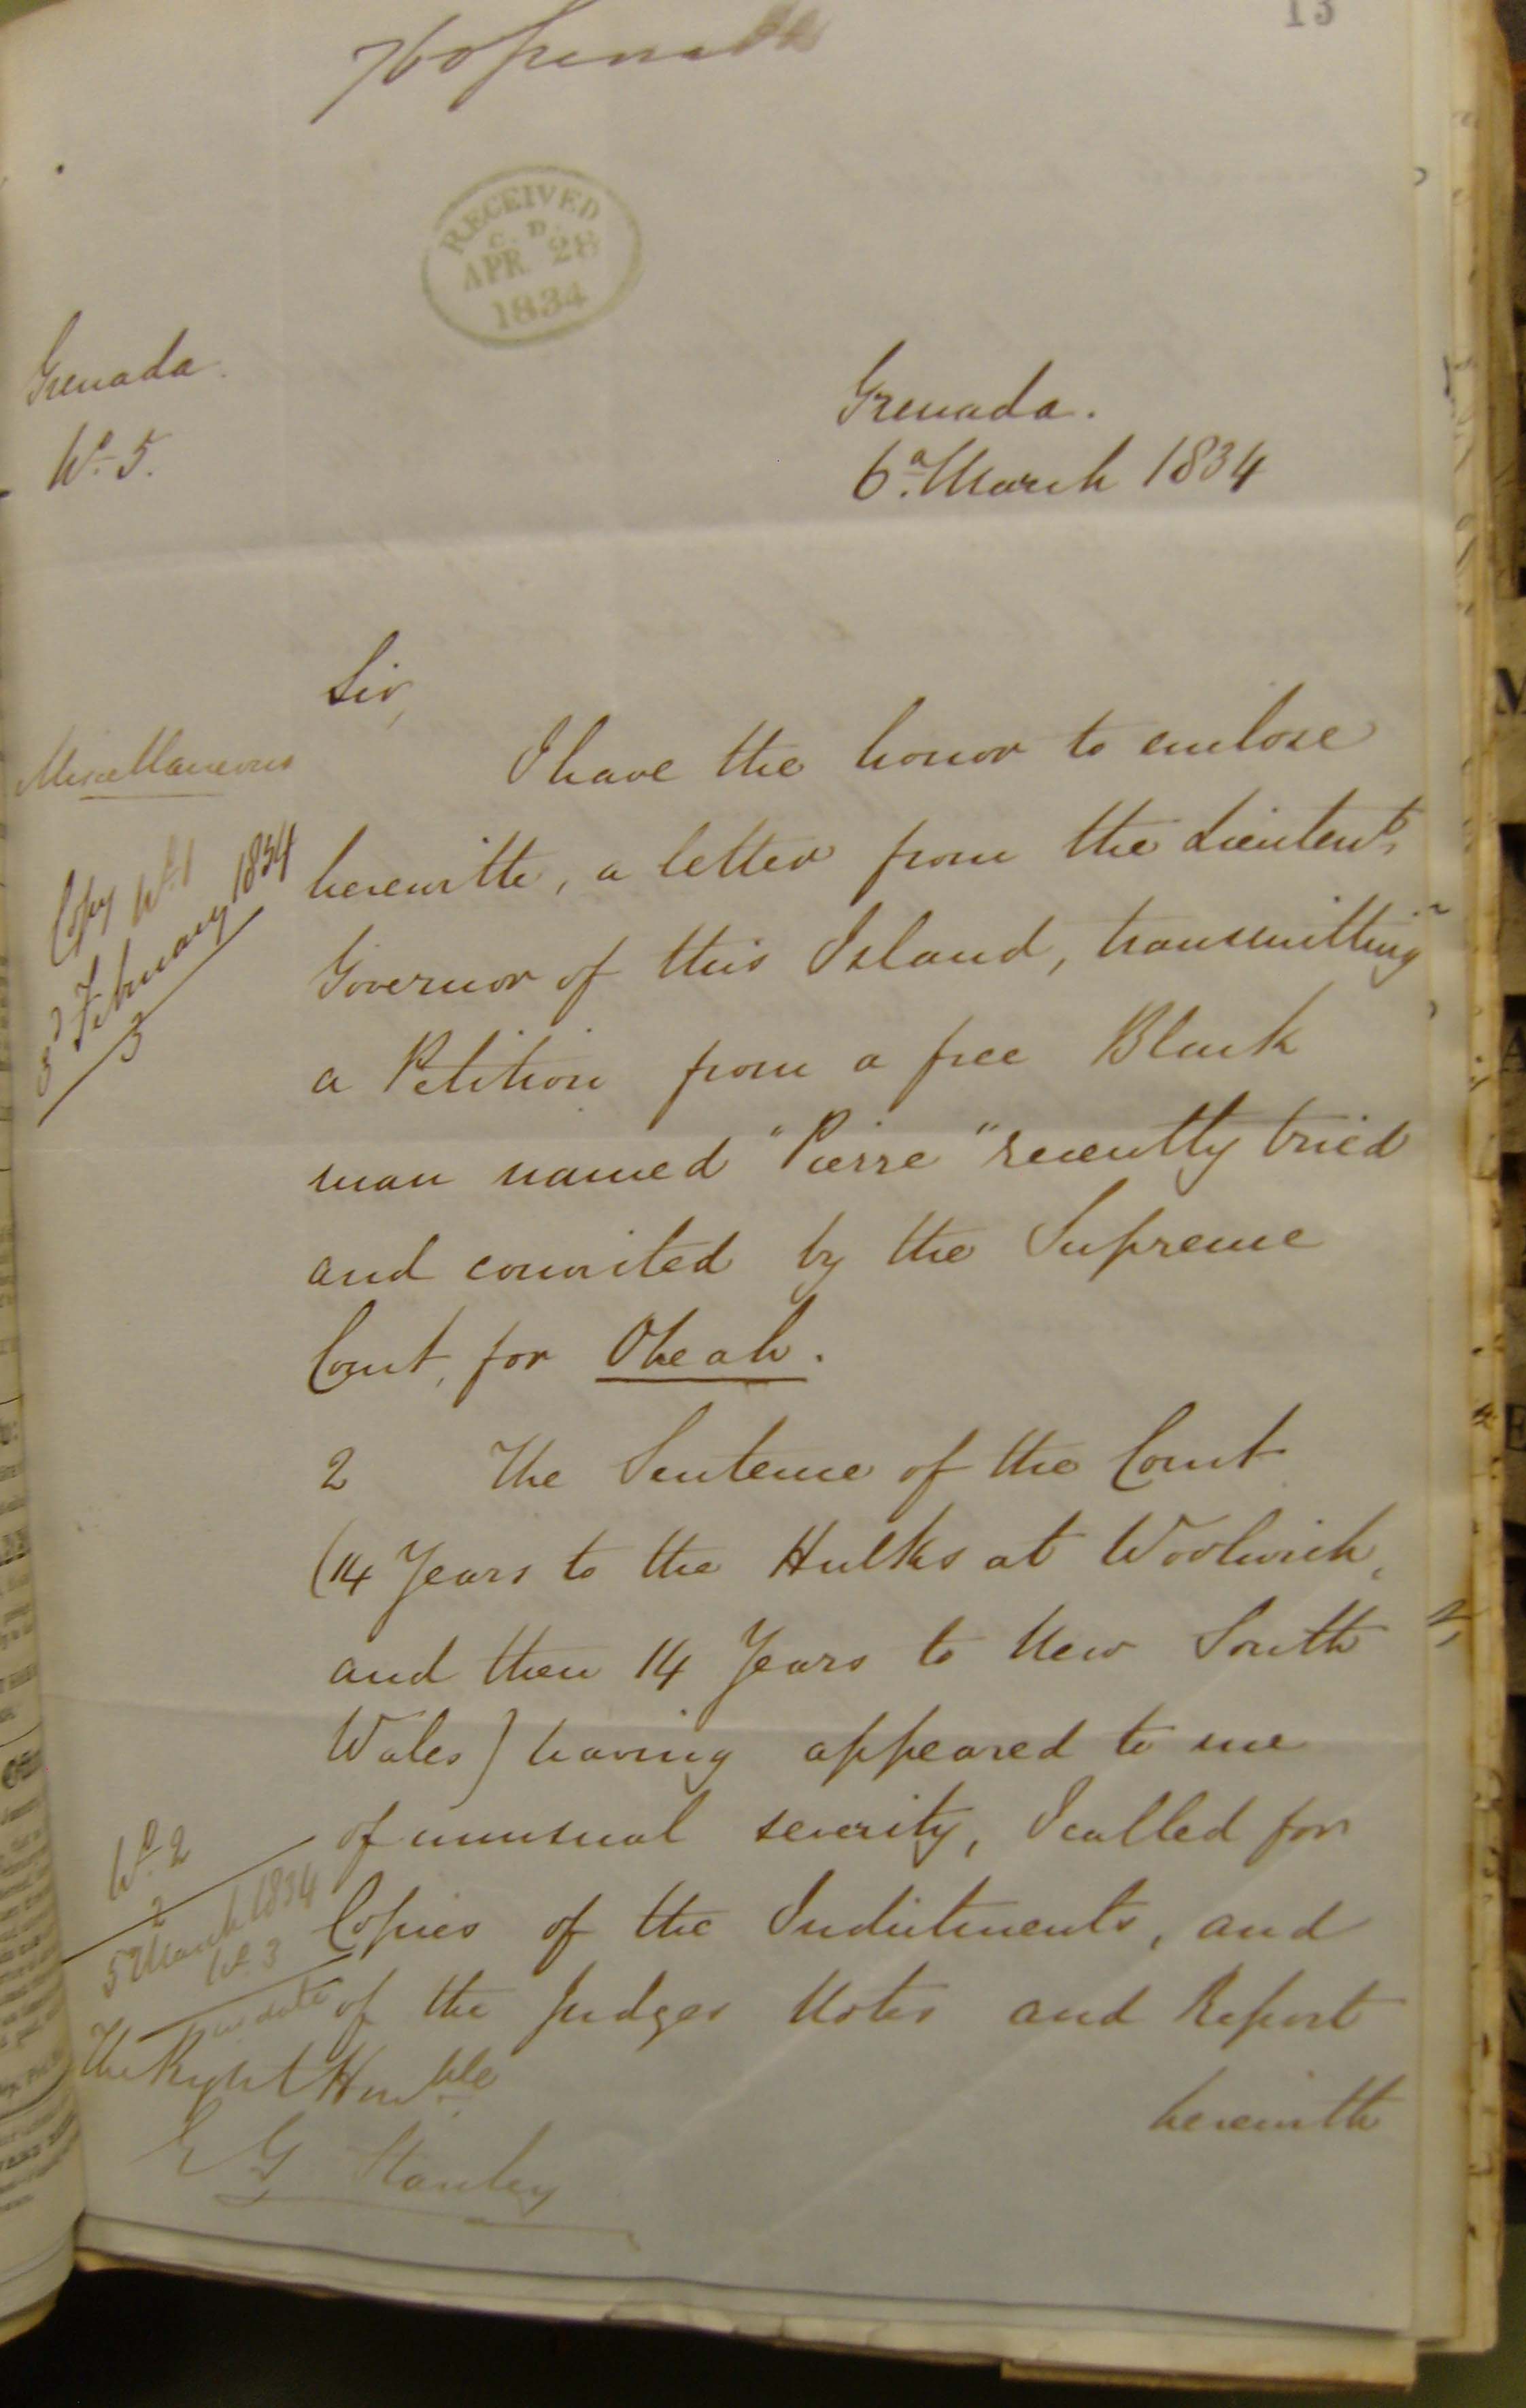 13
RECEIVED
C. D.
APR 28
1834
Grenada.
No. 5.
Grenada.
6th March 1834
Sir,
Miscellaneous
I have the honor to enclose
Copy No. 1
3d February 1834
3
herewith, a letter from the Lieutent.
Governor of this Island, transmitting
a Petition from a free Black
man named "Pierre" recently tried
and convicted by the Supreme
Court, for Obeah.
2 The Sentence of the Court
(14 Years to the Hulks at Woolwich,
and then 14 Years to New South
Wales) having appeared to me
of unusual severity, I called for
No. 2
2
5 March 1834
No. 3
no date
Copies of the Indictments, and
of the Judges Notes and Report
herewith
The Right Honble.
E G Stanley